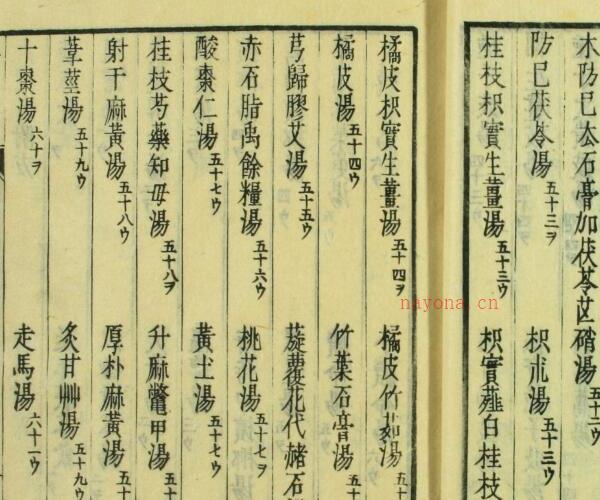 木防已去石膏加茯苓芒硝湯 五十二ウ
防已茯苓湯 五十三ヲ
枳朮湯 五十三ウ
桂枝枳實生薑湯 五十三ウ
枳實薤白桂枝
橘皮枳實生薑湯 五十四ヲ
橘皮竹茹湯 五十
橘皮湯 五十四ウ
竹葉石膏湯 五十
芎歸膠艾湯 五十五ウ
旋覆花代赭石
赤石脂禹餘糧湯 五十六ウ
桃花湯 五十七ヲ
酸棗仁湯 五十七ウ
黃土湯 五十七ウ
桂枝芍藥知母湯 五十八ヲ
升麻鼈甲湯 五十
射干麻黃湯 五十八ウ
厚朴麻黃湯 五十
葦莖湯 五十九ウ
炙甘艸湯 五十九ウ
十棗湯 六十ヲ
走馬湯 六十一ウ
nayona.cn